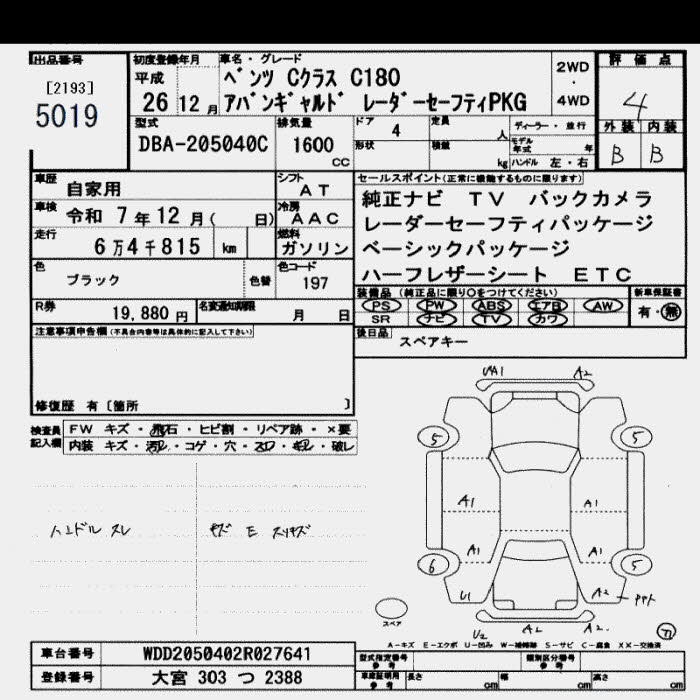 出品番号
[2193]
5019
初度登録年月
平成
26 12 月
車名・グレード
ベンツ Cクラス C180
アバンギャルド レーダーセーフティPKG
2WD
・
4WD
評価点
4
外装 内装
B B
型式
DBA-205040C
排気量
1600
cc
ドア
4
形状
定員
人
積載
kg
ディーラー・並行
モデル年式 年
ハンドル 左・右
車歴
自家用
シフト
AT
車検
令和 7年12月( 日)
冷房
AAC
走行
6万4千815 km
燃料
ガソリン
色
ブラック
色替
色コード
197
R券
19,880 円
名変通知期限
月 日
セールスポイント(正常に機能するものに限ります)
純正ナビ TV バックカメラ
レーダーセーフティパッケージ
ベーシックパッケージ
ハーフレザーシート ETC
装備品 (純正品に限り○をつけてください)
PS PW ABS エアB AW
SR ナビ TV カワ
新車保証書
有・無
後日品
スペアキー
注意事項申告欄(不具合内容等は具体的に記入して下さい)
修復歴 有〔箇所 〕
検査員
記入欄
FW キズ・飛石・ヒビ割・リペア跡・×要
内装 キズ・汚レ・コゲ・穴・スレ・キレ・破レ
ハンドル スレ
キズ E スリキズ
A2
5 5
A1 A1
A1 A1
6 5
U1
A2
U2 A2 A2.
スペア
A-キズ E-エクボ U-凹み W-補修跡 S-サビ C-腐食 XX-交換済
車台番号
WDD2050402R027641
登録番号
大宮 303 つ 2388
型式指定番号
参考
類別区分番号
参考
車庫証明用
参考
長さ cm
幅 cm
高さ cm